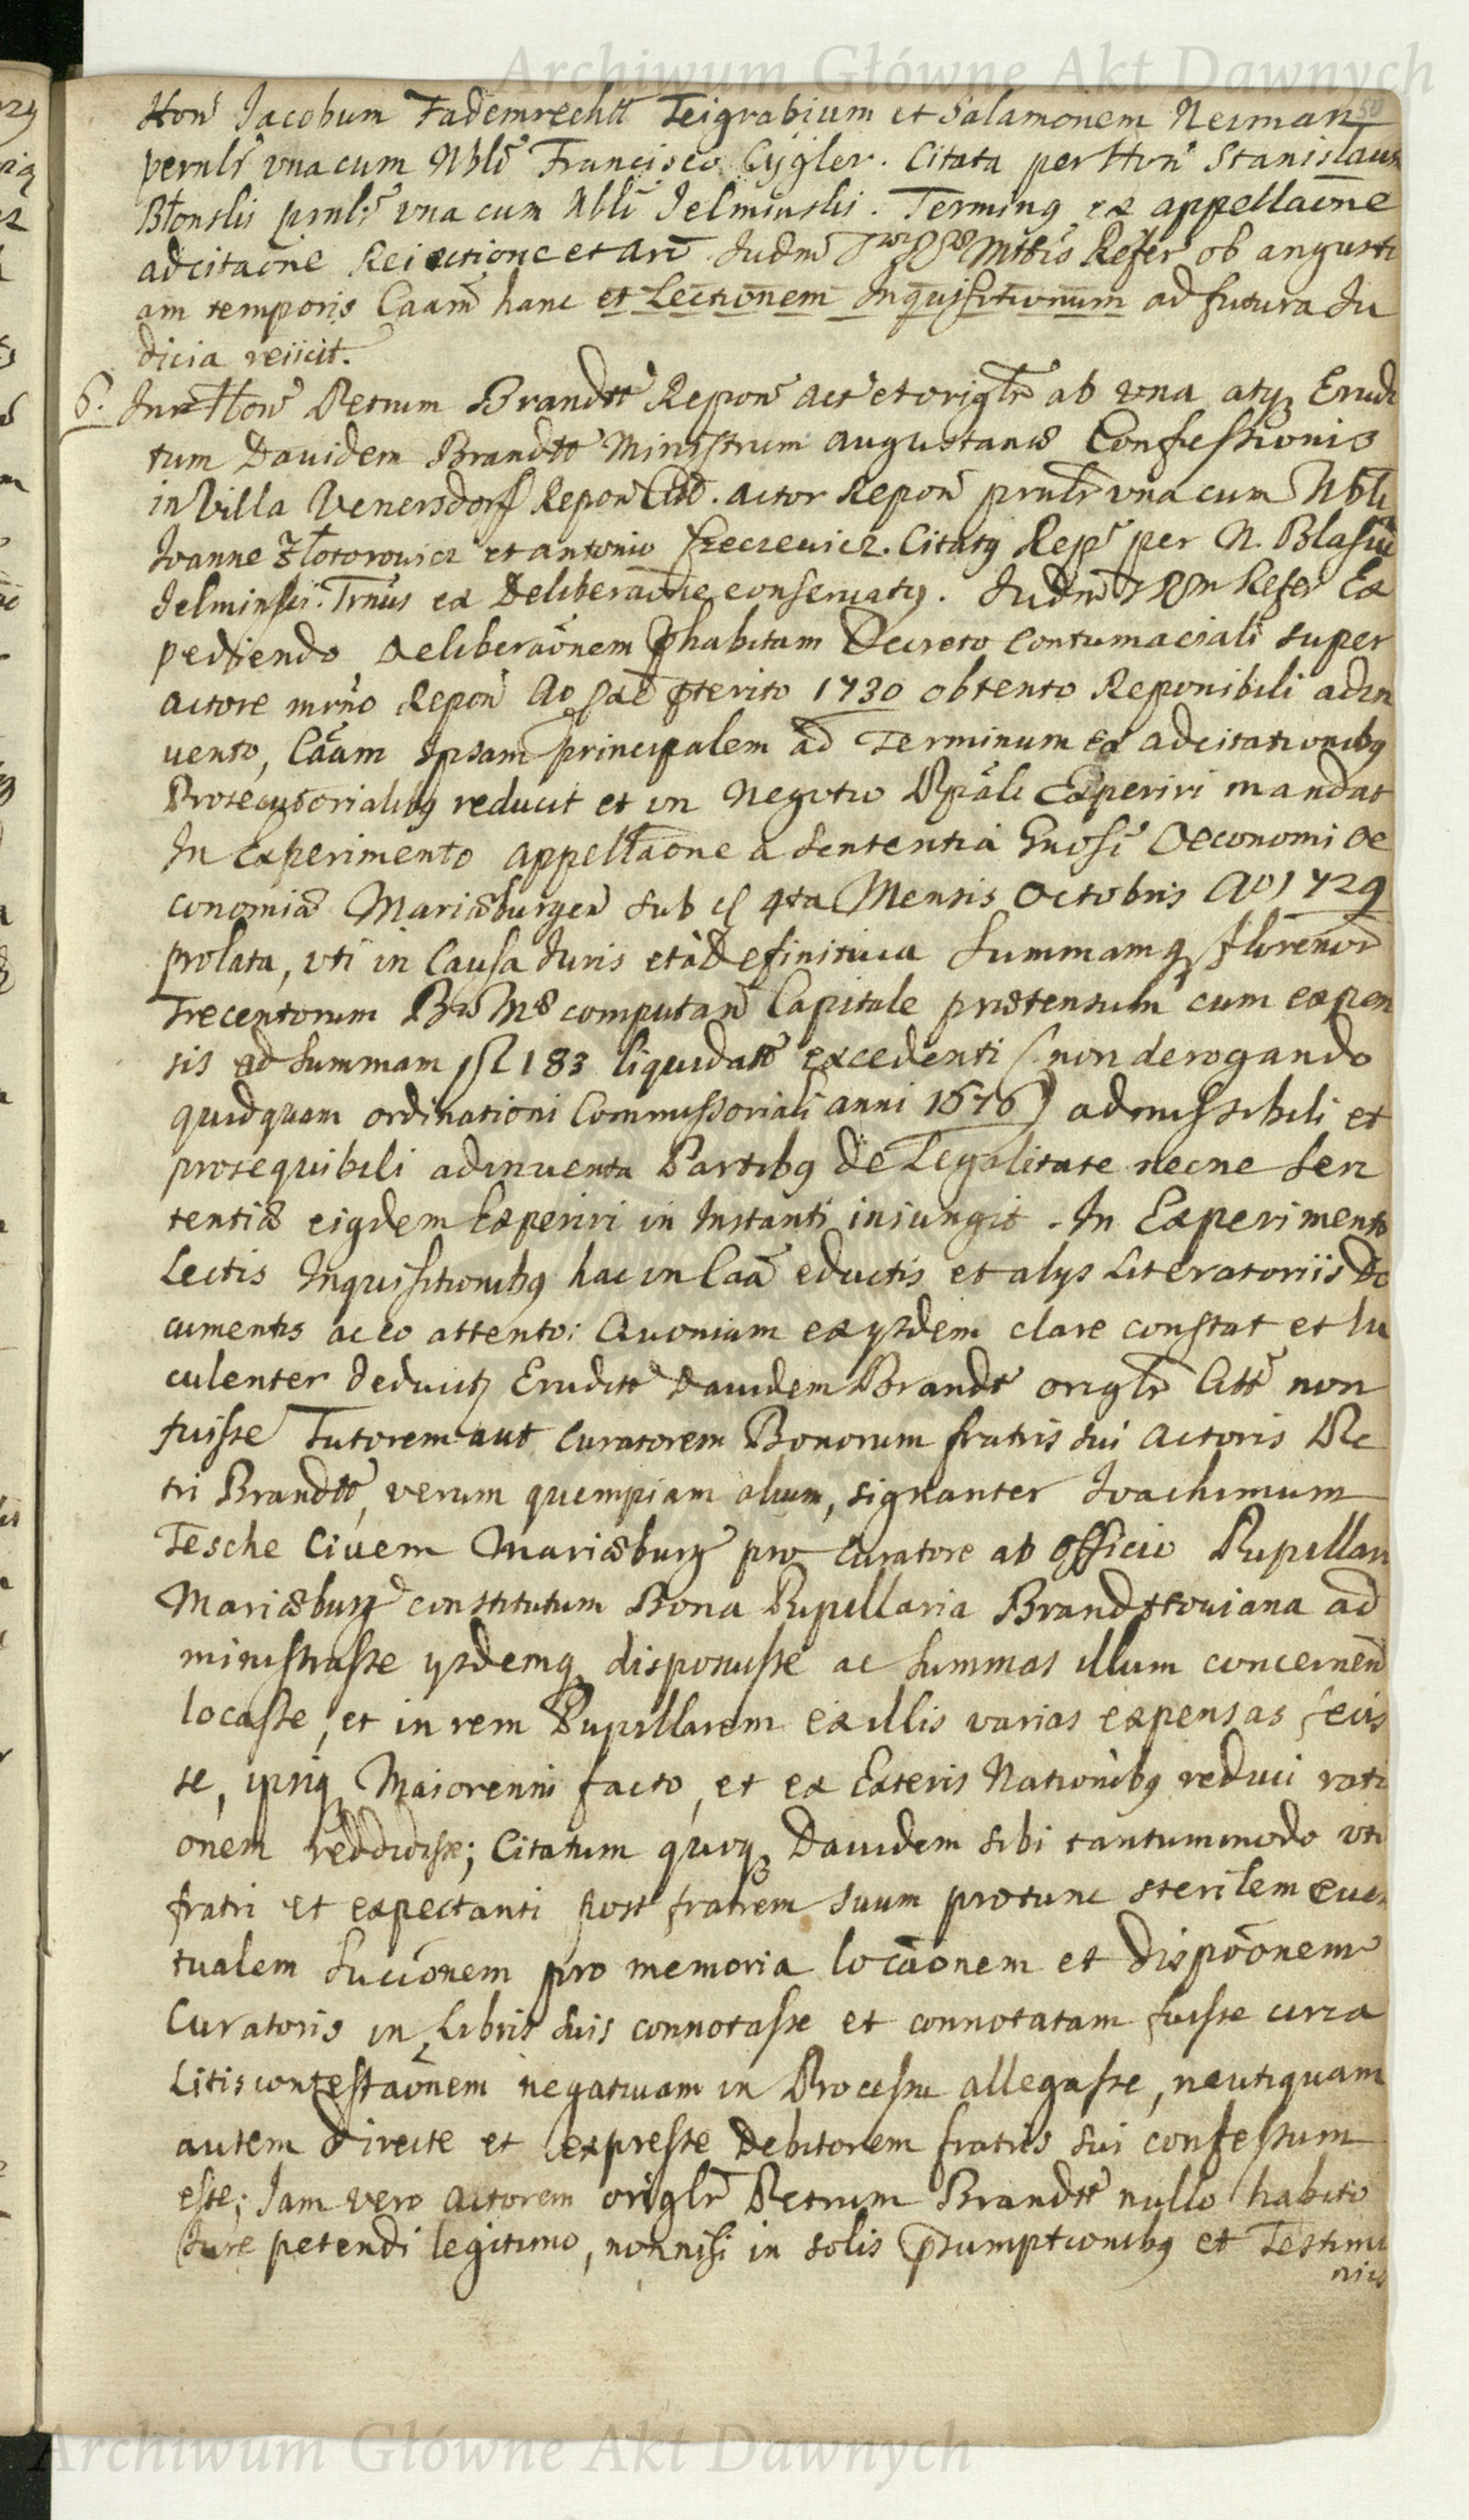 Archiwum Główne Akt Dawnych
50
Hon Jacobum Fademrecht Teigrabium et Salamonem Neiman
perulr vna cum Nbli Francisco Cygler. Citata per Hon Stanislaum
Błonslis prnlr vna cum Nbli Jelminslis. Terming ex appellaōne
adcitaōne Reiectione et arē. Judm Mtis Refer ob angusti
am temporis Caam hanc et Lectionem Inquisitionum ad futura Ju
dicia reiicit.
6. Inter Hon Petrum Brandtt Repon act et origlr ab vna atq Erudi
tum Davidem Brandtt Ministrum Augustanæ Confessionis
in Villa Venersdorf Repon Citt. actor Repon prnlr vna cum Nbli
Joanne Złotorowicz et antonio Citatq Rep per N. Blasiu
Jelminski. Trnus ex Deliberaōne conseruatq. Judm Refer Ex
pediendo Deliberaōnem phabitam Decreto Contumaciali super
actore mrno Repon Ao pterito 1730 obtento Reponibili adin
uento, Caam Ipsam principalem ad Terminum ex adcitationibq
Prosecutorialibq reducit et in Negotio Ppali Experiri mandat
In Experimento appellaōne a Sententia Gnosi Oeconomi Oe
conomiæ Mariæburgen sub d 4ta Mensis Octobris Ao 1729
prolata, vti in Causa Juris et à Definitiua Summamq florenor
Trecentorum computan Capitale prætensum cum expen
sis ad summam fl 183 liquidatt excedenti (non derogando
quidquam ordinationi Commissoriali anni 1676) admissibili et
prosequibili adinuenta Partibq de Legalitate necne Sen
tentiæ eiqdem Experiri in Instanti iniungit. In Experimento
Lectis Inquisitionibq hac in Caā eductis et alys Literatoriis Do
cumentis ac eo attento: Quoniam ex ysdem clare constat et lu
culenter deducit Eruditt Dauidem Brandt origlr Citt non
fuisse Tutorem aut Curatorem Bonorum fratris sui Actoris Pe
tri Brandtt, verum quempiam alium, signanter Joachimum
Tesche Ciuem Mariæburg pro Curatore ab Officio Pupillari
Mariæburg constitutum Bona Pupillaria Brandtouiana ad
ministrasse ysdemq disposuisse ac Summas illum concernen
locasse, et in rem Pupillarem ex illis varias expensas fecis
se, ipsiq Maiorenni facto, et ex Exteris Nationibq reduci rati
onem reddidisse; Citatum quoq Dauidem sibi tantummodo vti
fratri et expectanti post fratrem suum protunc sterilem euen
tualem Succōnem pro memoria locaōnem et dispoōnem
Curatoris in Libris suis connotasse et connotatam fuisse circa
Litiscontestaōnem negatiuam in Processu allegasse, neutiquam
autem directe et expresse Debitorem fratris sui confessum
esse; Jam vero actorem origlr Petrum Brandtt nullo habito
Jure petendi legitimo, nonnisi in solis psumptionibq et Testimo
niis
Archiwum Główne Akt Dawnych